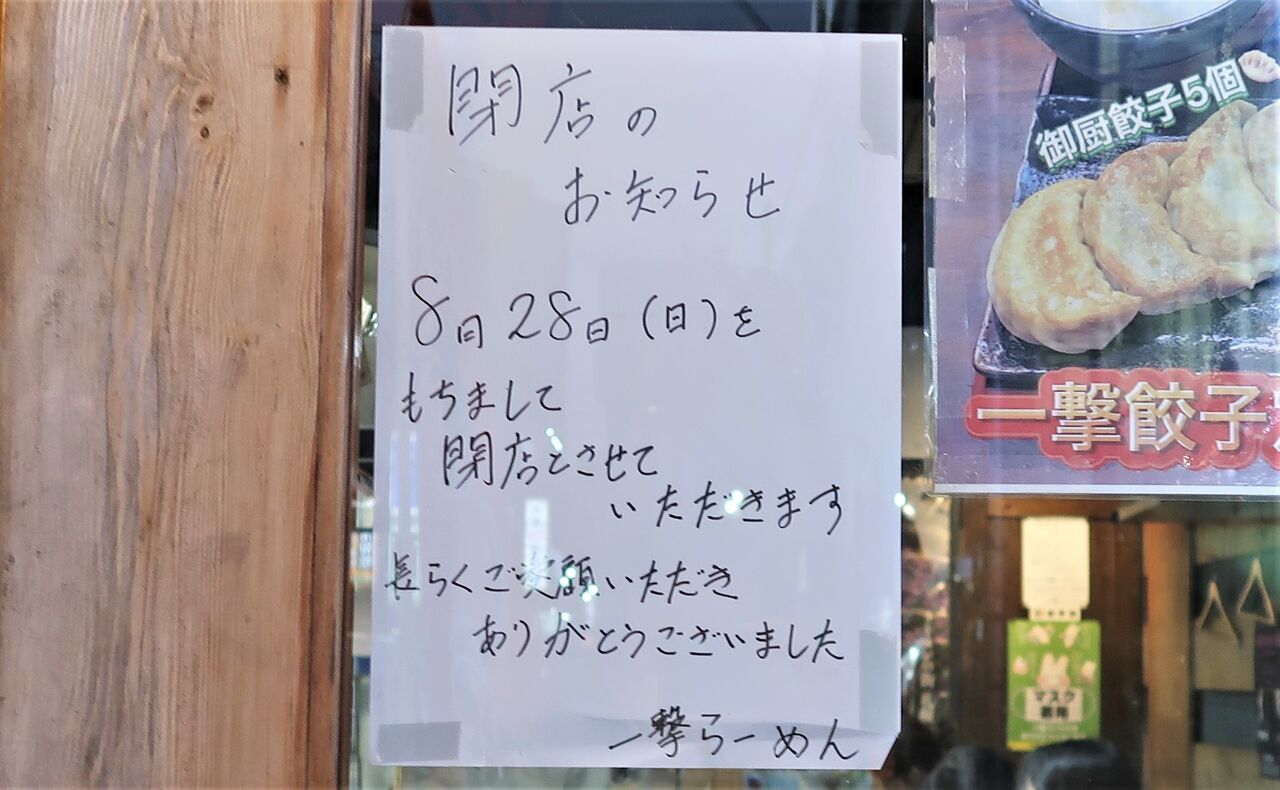 閉店の
お知らせ
8月28日(日)を
もちまして
閉店とさせて
いただきます
長らくご愛顧いただき
ありがとうございました
一撃らーめん
御厨餃子5個
一撃餃子
マスク
着用